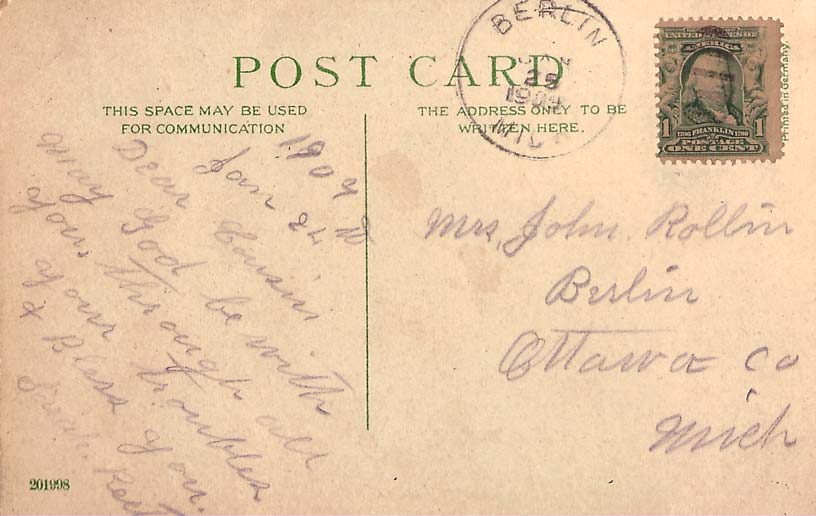 POST CARD
THIS SPACE MAY BE USED
FOR COMMUNICATION
THE ADDRESS ONLY TO BE
WRITTEN HERE.
BERLIN
25
MICH
UNITED STATES OF
AMERICA
1 FRANKLIN 1
POSTAGE
ONE CENT
Printed in Germany.
Jan 24
Dear Cousin
may God be with
you through all
of your troubles
& Bless you.
Mrs, John. Rollin
Berlin
Ottawa Co
Mich
201998